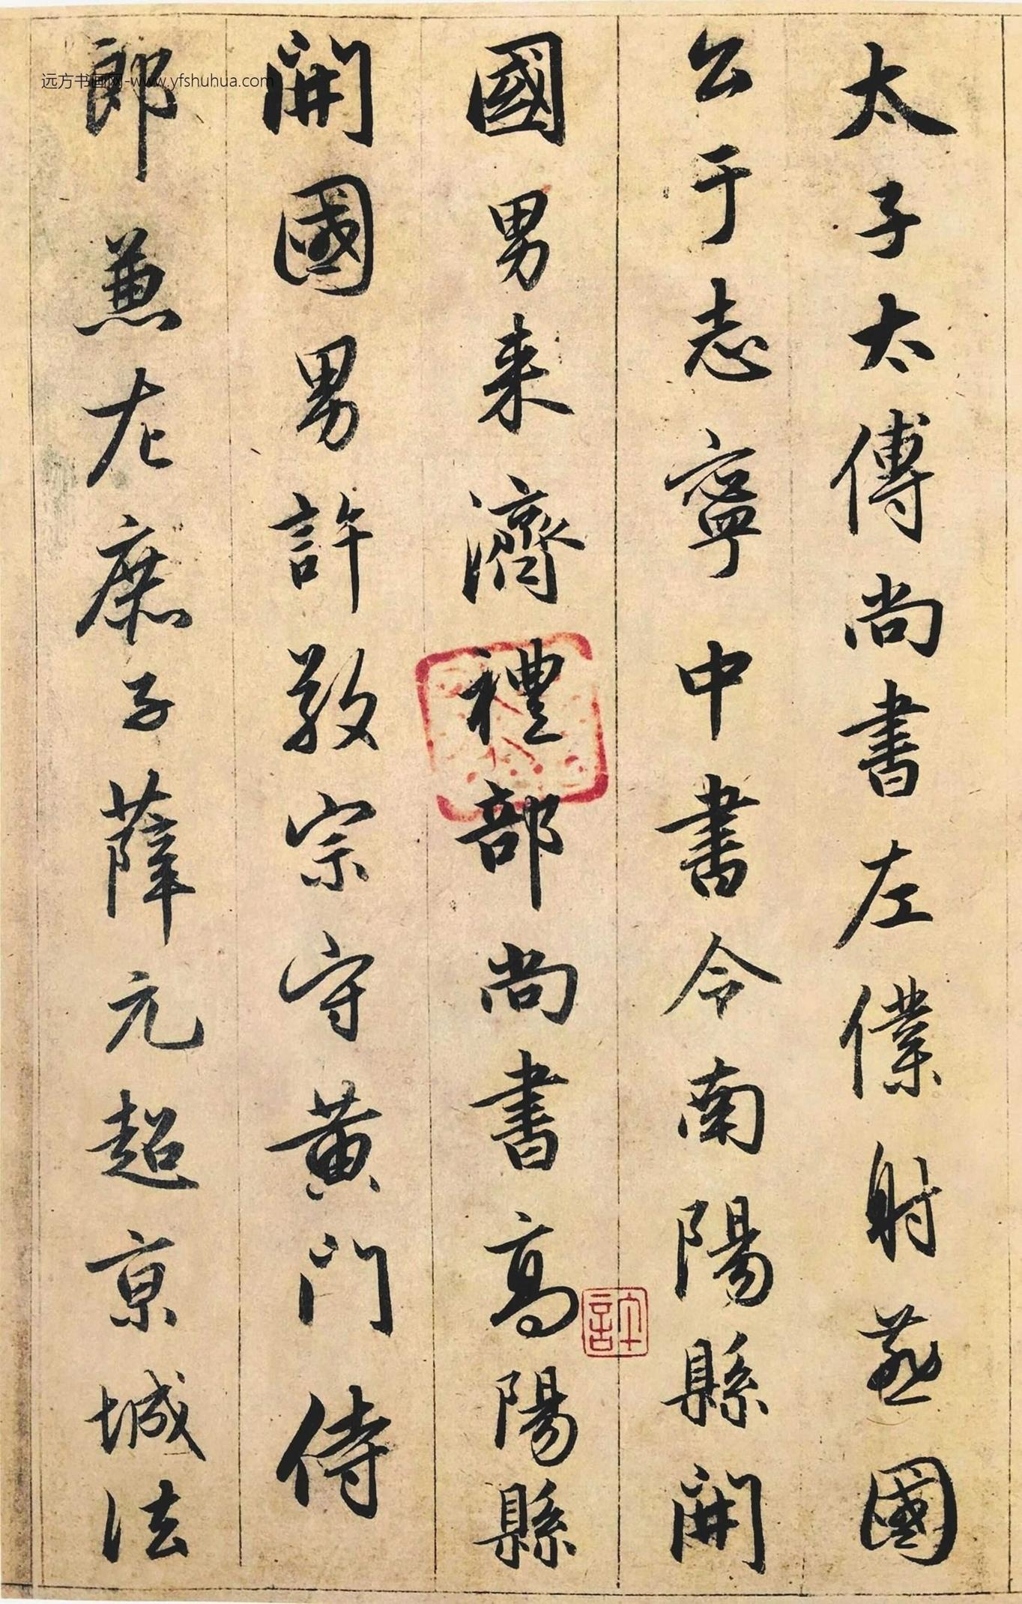 太子太傅尚書左僕射燕國
公于志寧中書令南陽縣開
國男来濟禮部尚書高陽縣
開國男許敬宗守黄門侍
郎兼左庶子薛元超京城法
許
远方书画网-www.yfshuhua.com